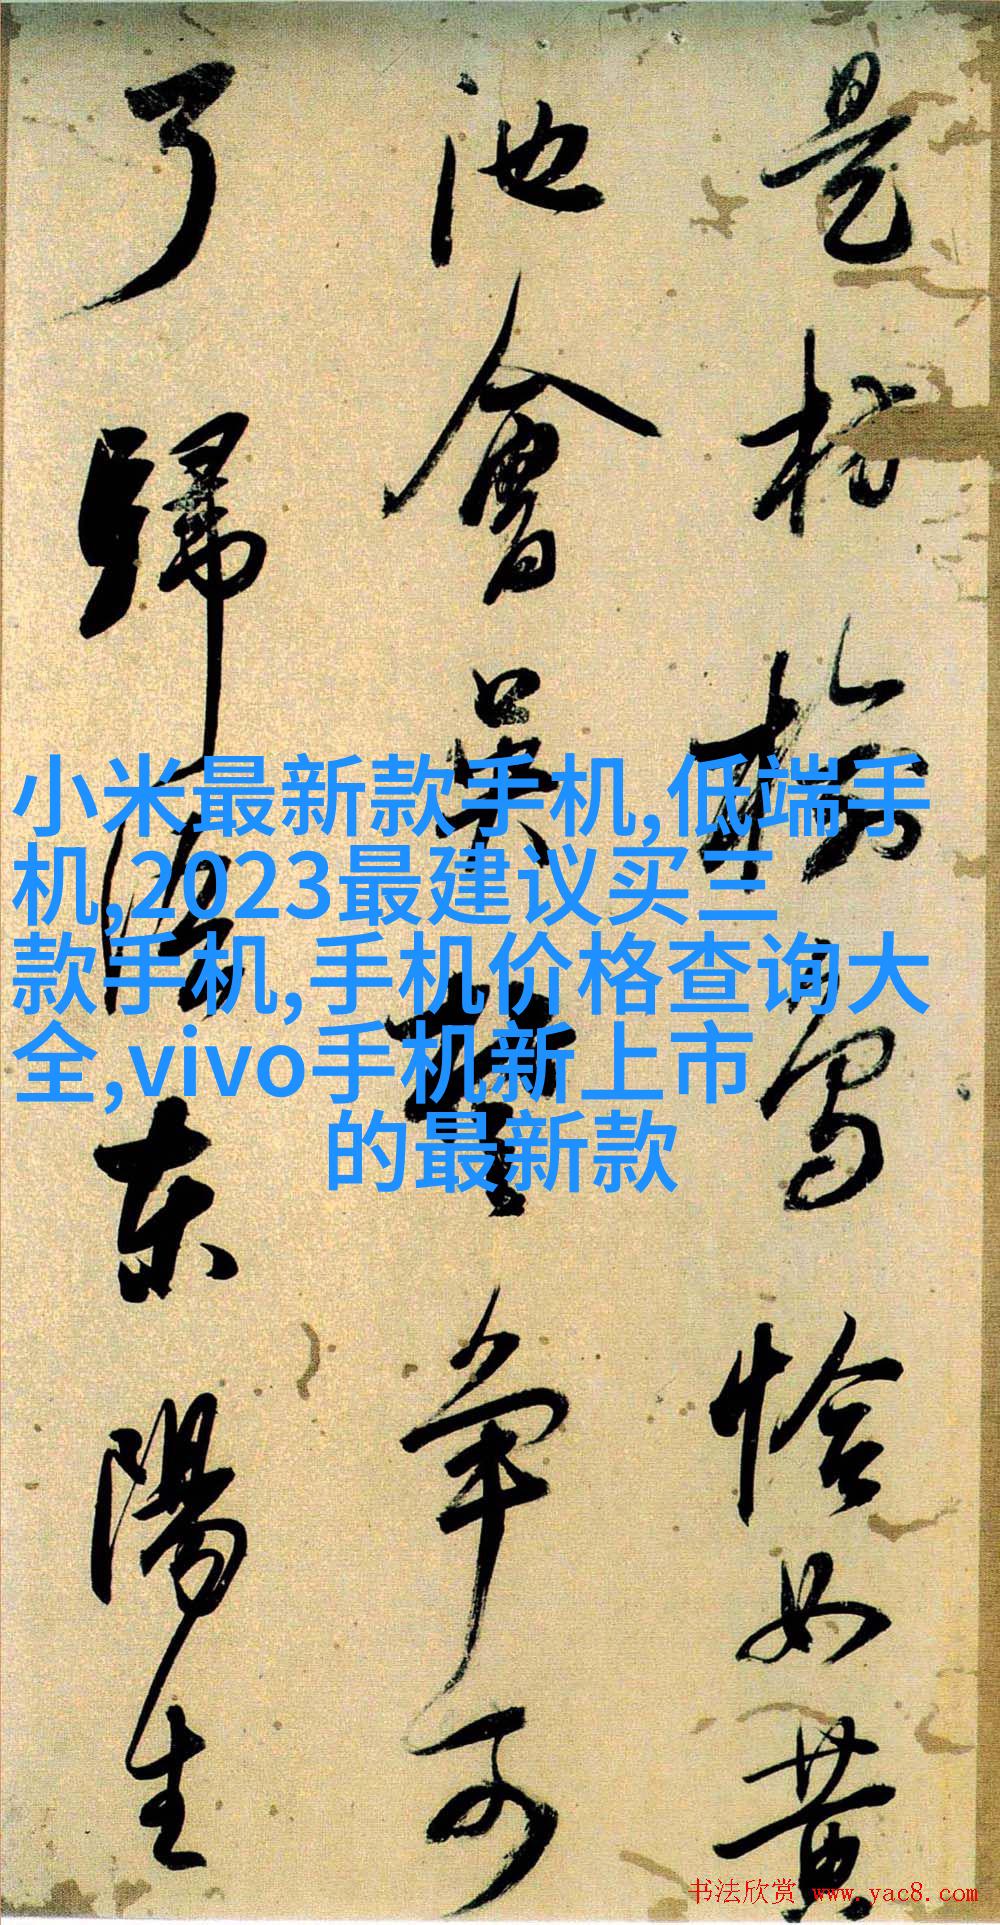 是枋榆恰如黄
池會吳楚争
了歸东陽生
小米最新款手机,低端手
机,2023最建议买三
款手机,手机价格查询大
全,vivo手机新上市
的最新款
书法欣赏 www.yac8.com